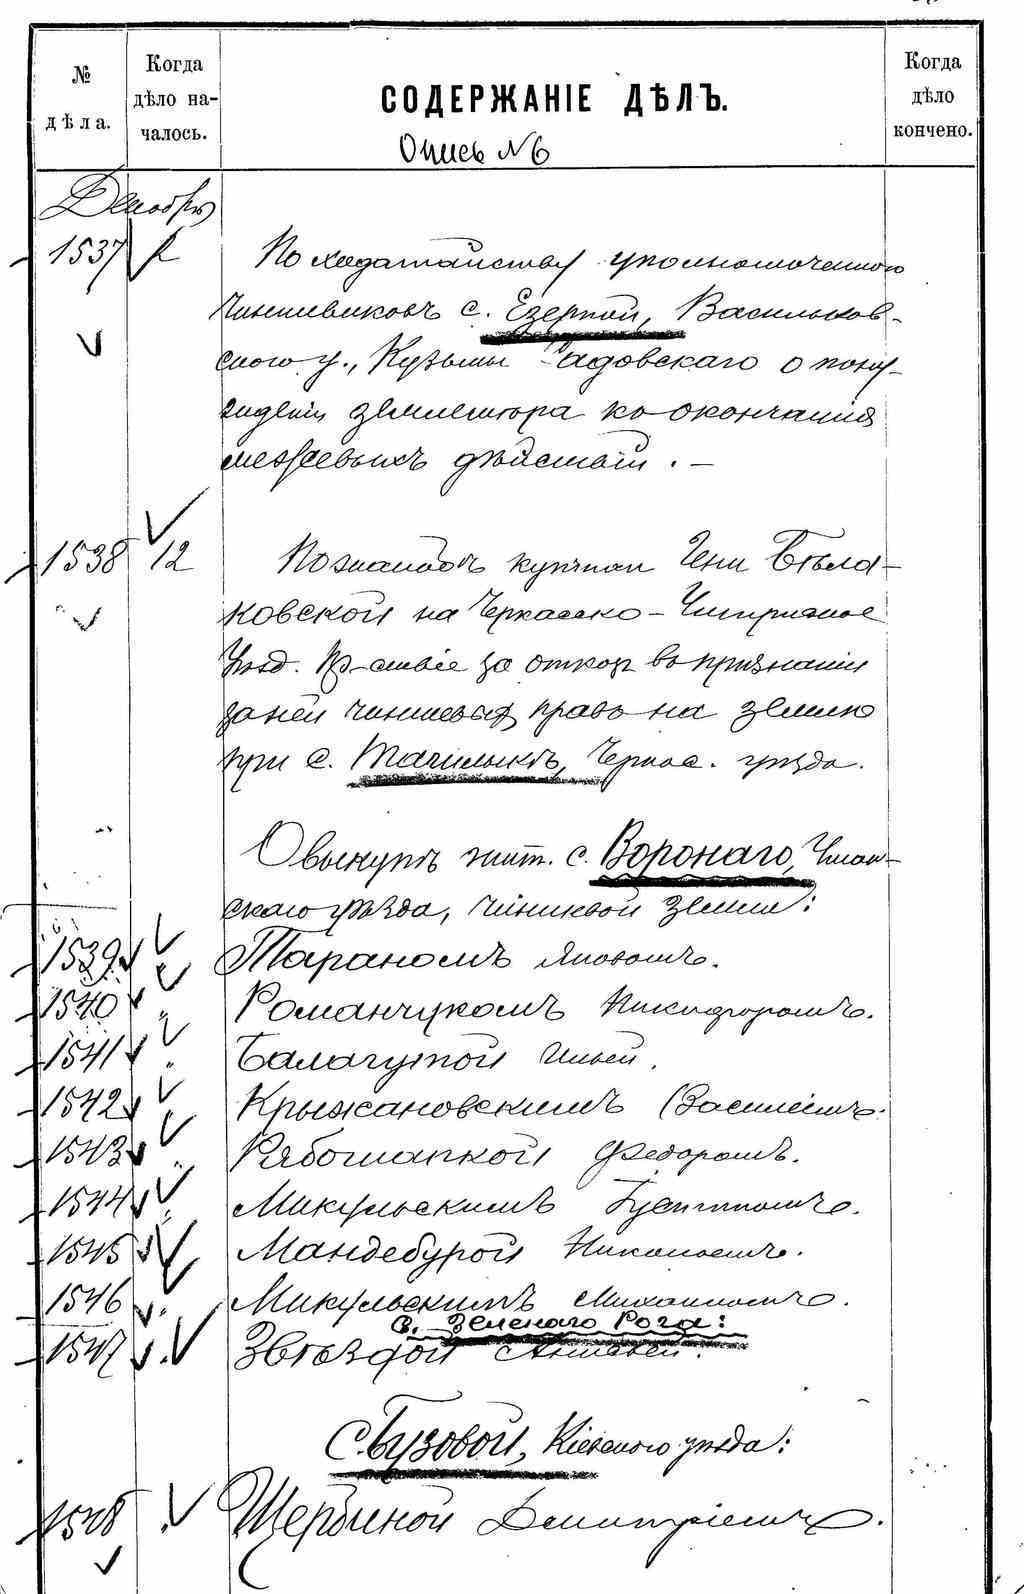 № дѣла.
Когда дѣло началось.
СОДЕРЖАНІЕ ДѢЛЪ.
Когда дѣло кончено.
Опись №6
Декабрь
1537 2 По ходатайству уполномоченного
чиншевиковъ с. Езерной, Васильков-
ского у., Кузьмы Садовскаго о пону-
ждении землемера ко окончанию
межевыхъ действий. —
1538 12 По жалобѣ купчихи Бѣла-
ковской на Черкасско-Чигиринское
Уѣзд. Пр-ствіе за отказ въ признании
за ней чиншевых право на землю
при с. Тасмыкъ, Черкас. уѣзда.
О выкупѣ жит. с. Воронаго, Уман-
скаго уѣзда, чиншевой земли:
1539 Тараномъ Яковомъ.
1540 " Романчукомъ Никифоромъ.
1541 " Балагутой Ильей.
1542 Крыжановскимъ Василіемъ.
1543 " Рябошапкой Федоромъ.
1544 " Микульскимъ
1545 Мандебурой Николаемъ.
1546 " Микульскимъ Михаиломъ.
с. Зеленаго Рога:
1547 Звѣздой
с. Бузовой, Кіевского уѣзда:
1548 Щербиной Димитріемъ.